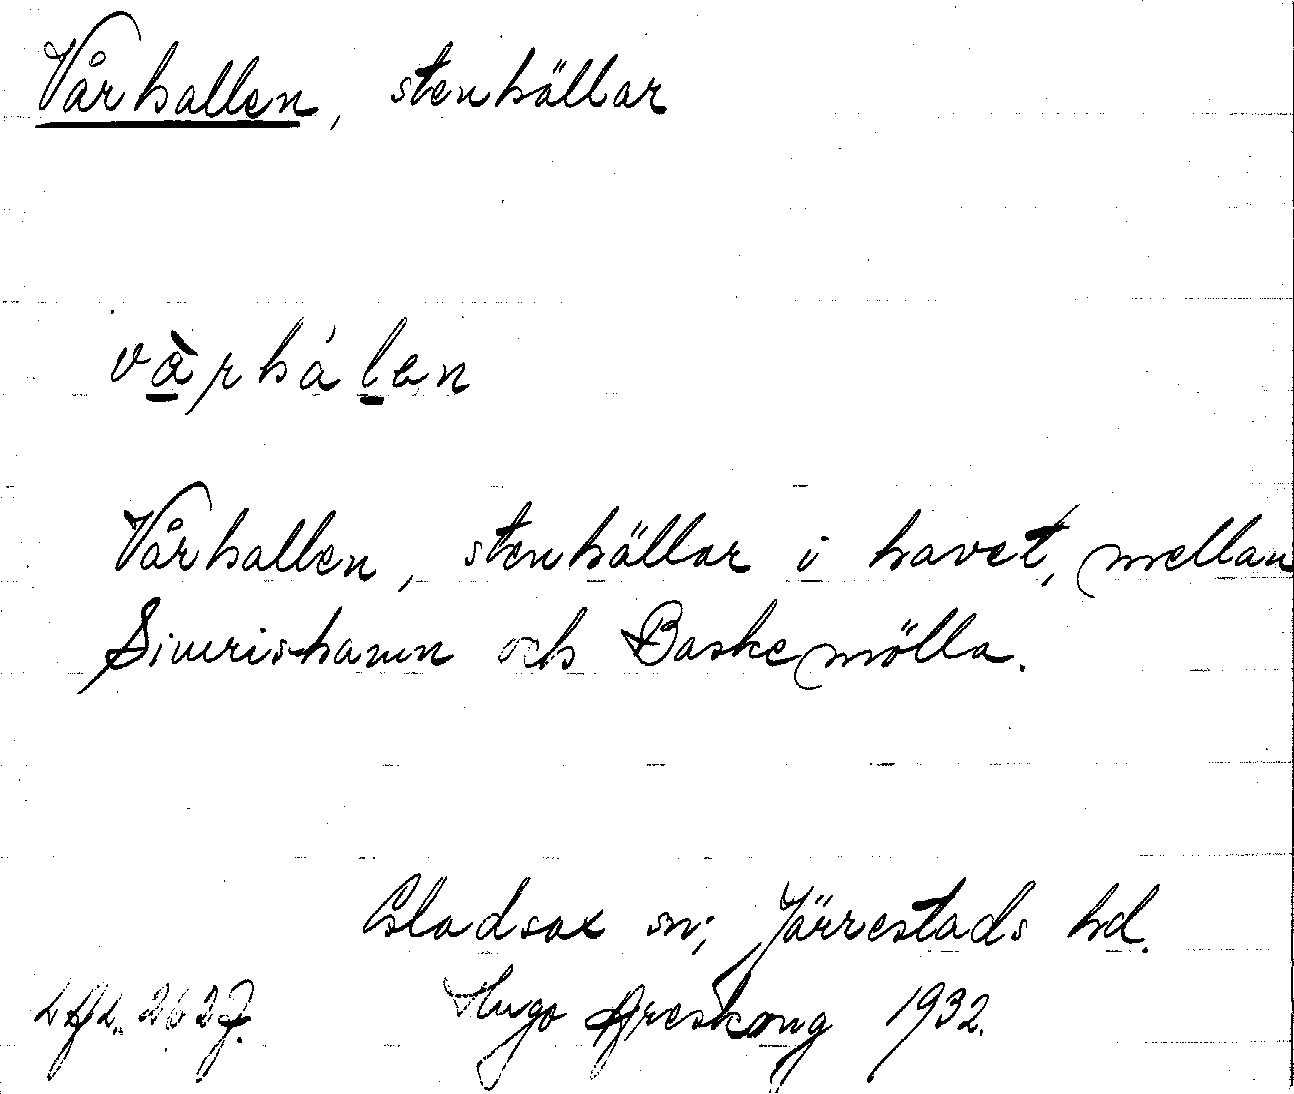 Vårhallen, stenhällar
vàrhálen
Vårhallen, stenhällar i havet, mellan
Simrishamn och Baskemölla.
Gladsax sn; Järrestads hd.
Hugo Areskoug 1932.